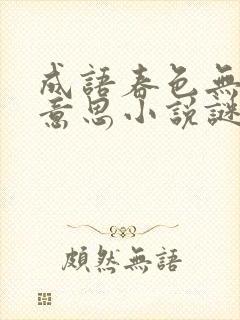 成語春色無
意思小說謎
頗然無語